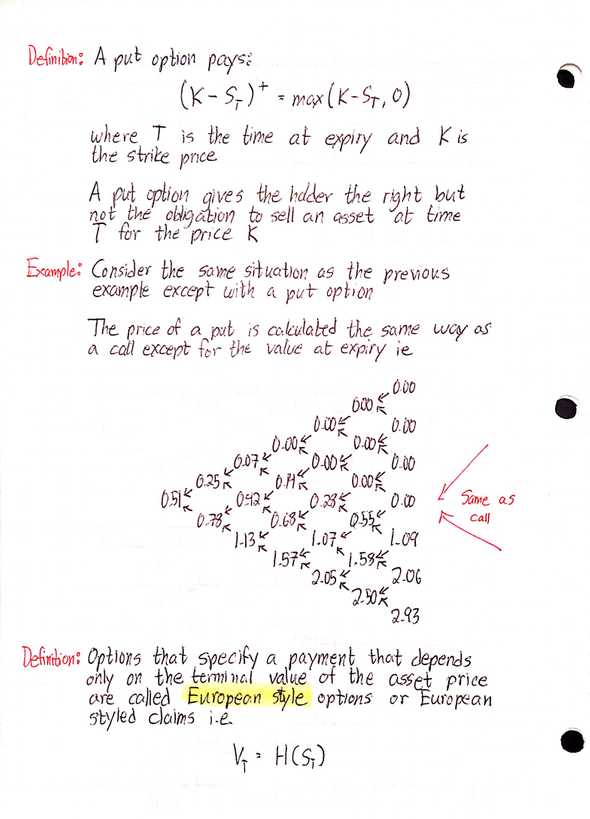 Definition: A put option pays:
(K - S_T)^+ = max(K - S_T, 0)
where T is the time at expiry and K is
the strike price
A put option gives the holder the right but
not the obligation to sell an asset at time
T for the price K
Example: Consider the same situation as the previous
example except with a put option
The price of a put is calculated the same way as
a call except for the value at expiry ie
0.00
0.00
0.00 0.00
0.00 0.00
0.07 0.00 0.00
0.25 0.14 0.00
0.51 0.42 0.28 0.00 Same as
0.78 0.68 0.55 call
1.13 1.07 1.09
1.57 1.58
2.05 2.06
2.50
2.93
Definition: Options that specify a payment that depends
only on the terminal value of the asset price
are called European style options or European
styled claims i.e.
V_T = H(S_T)